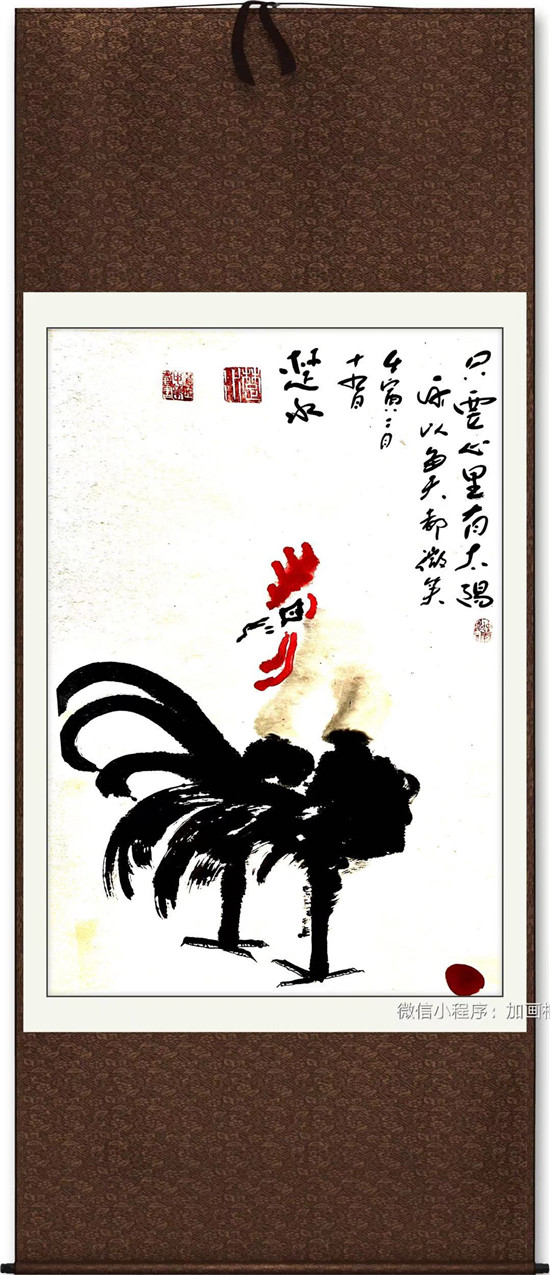 只要心里有太陽
所以每天都微笑
壬寅二月
楚水
微信小程序：加画